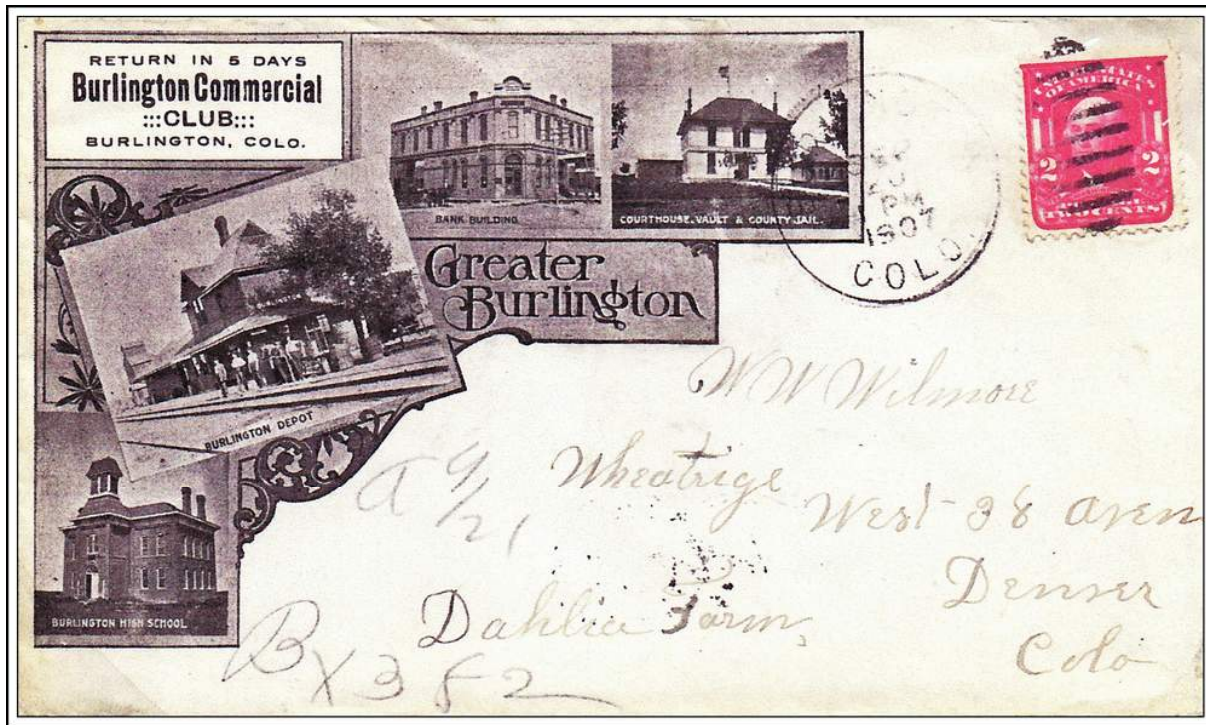 RETURN IN 5 DAYS
Burlington Commercial
:::CLUB:::
BURLINGTON, COLO.
BANK BUILDING
COURTHOUSE, VAULT & COUNTY JAIL.
Greater
Burlington
BURLINGTON DEPOT
BURLINGTON HIGH SCHOOL
PM
1907
COLO.
UNITED STATES
OF AMERICA
2 2
TWO CENTS
W W Wilmore
Wheatrige
West 38 Aven
Denver
Colo
Dahlia Farm,
a 9/21
Bx 382